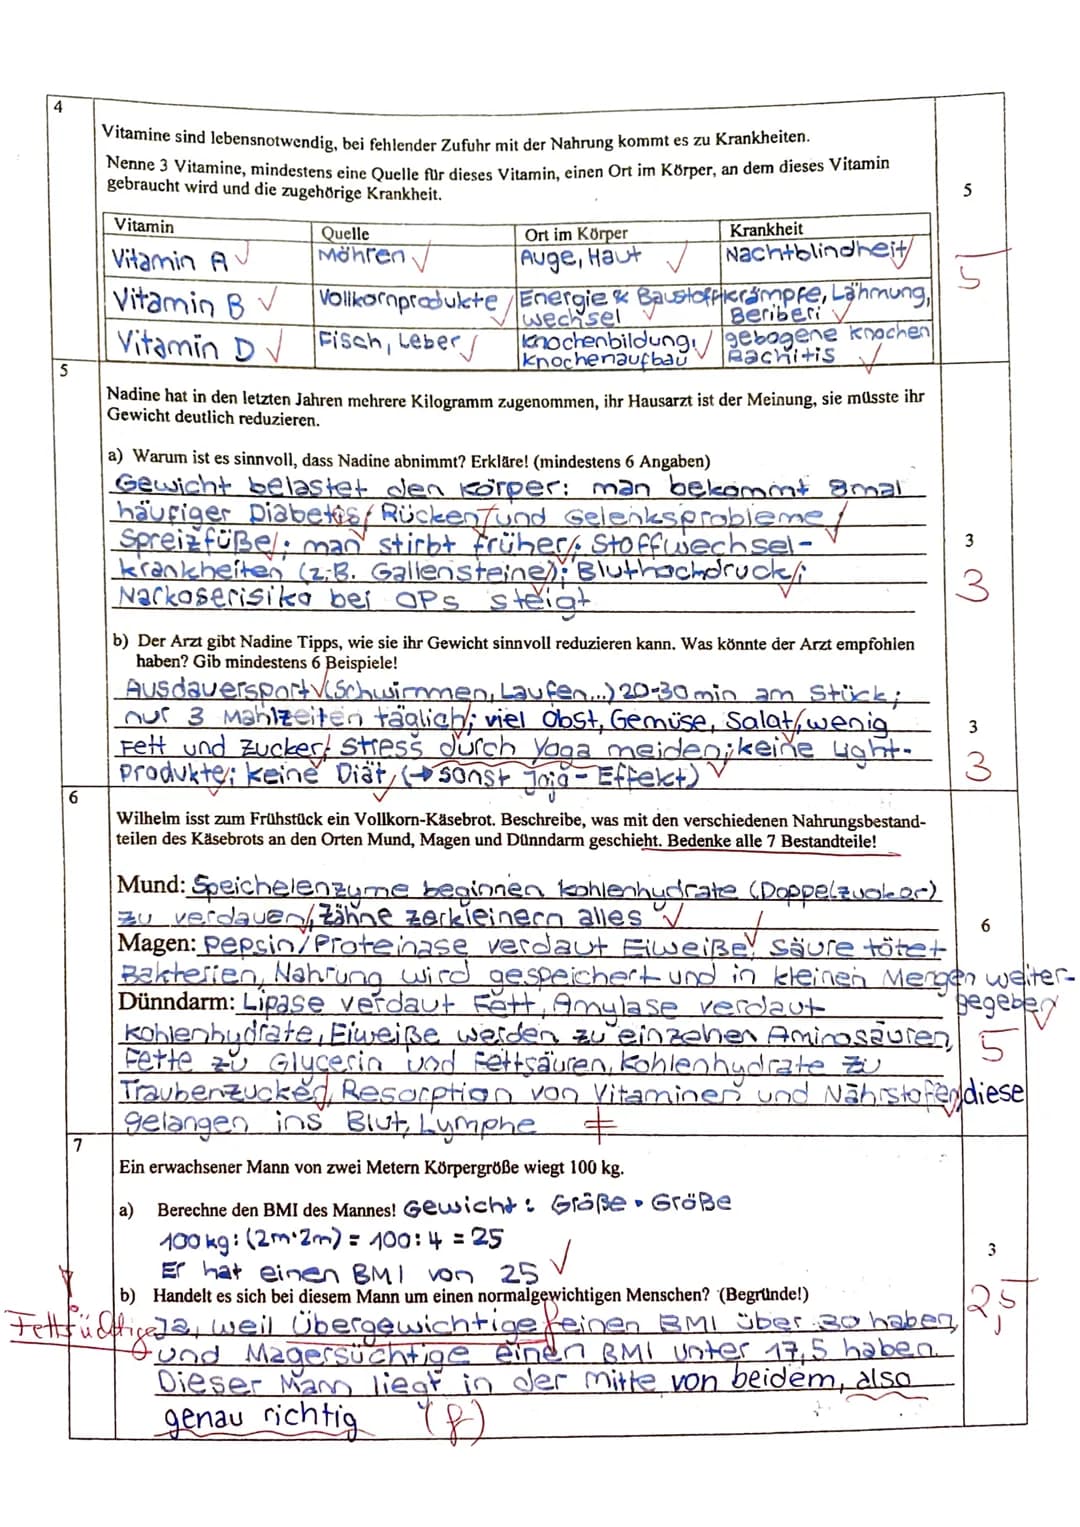 4
Vitamine sind lebensnotwendig, bei fehlender Zufuhr mit der Nahrung kommt es zu Krankheiten.
Nenne 3 Vitamine, mindestens eine Quelle für dieses Vitamin, einen Ort im Körper, an dem dieses Vitamin
gebraucht wird und die zugehörige Krankheit.
5
5
Vitamin Quelle Ort im Körper Krankheit
Vitamin A Möhren Auge, Haut Nachtblindheit
Vitamin B Vollkornprodukte Energie & Baustoff- Krämpfe, Lähmung,
wechsel Beriberi
Vitamin D Fisch, Leber Knochenbildung, gebogene Knochen
Knochenaufbau Rachitis
5
Nadine hat in den letzten Jahren mehrere Kilogramm zugenommen, ihr Hausarzt ist der Meinung, sie müsste ihr
Gewicht deutlich reduzieren.
a) Warum ist es sinnvoll, dass Nadine abnimmt? Erkläre! (mindestens 6 Angaben)
Gewicht belastet den Körper: man bekommt 8mal
häufiger Diabetis; Rücken und Gelenksprobleme;
Spreizfüße; man stirbt früher; Stoffwechsel-
krankheiten (z.B. Gallensteine); Bluthochdruck;
Narkoserisiko bei OPs steigt
3
3
b) Der Arzt gibt Nadine Tipps, wie sie ihr Gewicht sinnvoll reduzieren kann. Was könnte der Arzt empfohlen
haben? Gib mindestens 6 Beispiele!
Ausdauersport (Schwimmen, Laufen...) 20-30 min am Stück;
nur 3 Mahlzeiten täglich; viel Obst, Gemüse, Salat, wenig
Fett und Zucker; Stress durch Yoga meiden; keine Light-
produkte; keine Diät, (→ sonst Jojo-Effekt)
3
3
6
Wilhelm isst zum Frühstück ein Vollkorn-Käsebrot. Beschreibe, was mit den verschiedenen Nahrungsbestand-
teilen des Käsebrots an den Orten Mund, Magen und Dünndarm geschieht. Bedenke alle 7 Bestandteile!
Mund: Speichelenzyme beginnen Kohlenhydrate (Doppelzucker)
zu verdauen, Zähne zerkleinern alles
6
Magen: Pepsin/Proteinase verdaut Eiweiße, Säure tötet
Bakterien, Nahrung wird gespeichert und in kleinen Mengen weiter-
gegeben
Dünndarm: Lipase verdaut Fett, Amylase verdaut
Kohlenhydrate, Eiweiße werden zu einzelnen Aminosäuren,
5
Fette zu Glycerin und Fettsäuren, Kohlenhydrate zu
Traubenzucker, Resorption von Vitaminen und Nährstoffen, diese
gelangen ins Blut, Lymphe
7
Ein erwachsener Mann von zwei Metern Körpergröße wiegt 100 kg.
a) Berechne den BMI des Mannes! Gewicht : Größe · Größe
100kg : (2m·2m) = 100 : 4 = 25
Er hat einen BMI von 25
3
2,5
b) Handelt es sich bei diesem Mann um einen normalgewichtigen Menschen? (Begründe!)
Fettsüchtige
Ja, weil Übergewichtige einen BMI über 30 haben,
und Magersüchtige einen BMI unter 17,5 haben.
Dieser Mann liegt in der mitte von beidem, also
genau richtig (f)